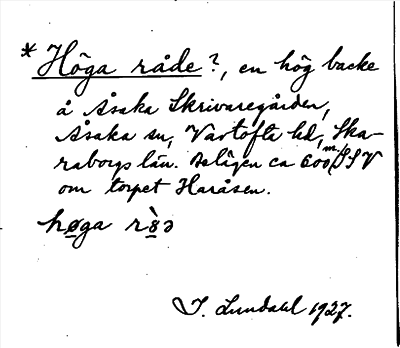 * Höga råde?, en hög backe
å Åsaka Skrivaregården,
Åsaka sn, Vartofta hd, Ska-
raborgs län. Belägen ca 600 m. SSV
om torpet Haråsen.
høga r
I. Lundahl 1927.